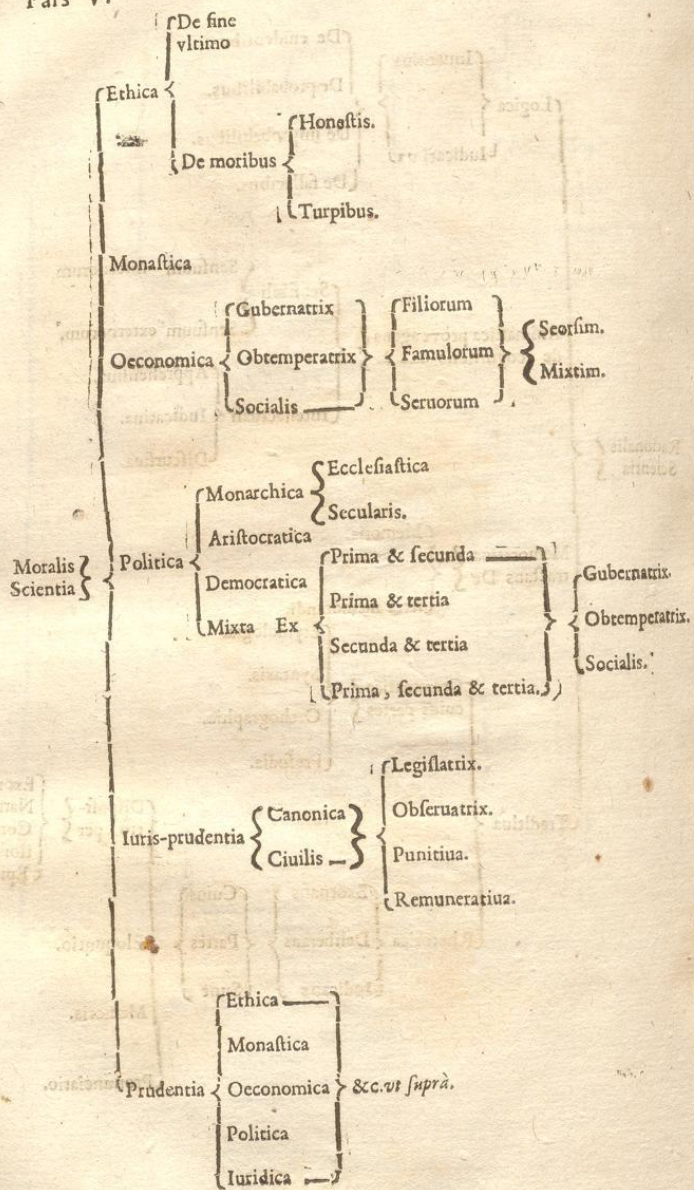 Pars V.
De fine
vltimo
Ethica
De moribus
Honeſtis.
Turpibus.
Monaſtica
Oeconomica
Gubernatrix
Obtemperatrix
Socialis
Filiorum
Famulorum
Seruorum
Seorſim.
Mixtim.
Moralis
Scientia
Politica
Monarchica
Eccleſiaſtica
Secularis.
Ariſtocratica
Democratica
Mixta Ex
Prima & ſecunda
Prima & tertia
Secunda & tertia
Prima, ſecunda & tertia.
Gubernatrix.
Obtemperatrix.
Socialis.
Iuris-prudentia
Canonica
Ciuilis
Legiſlatrix.
Obſeruatrix.
Punitiua.
Remuneratiua.
Prudentia
Ethica
Monaſtica
Oeconomica
Politica
Iuridica
&c. vt ſuprà.